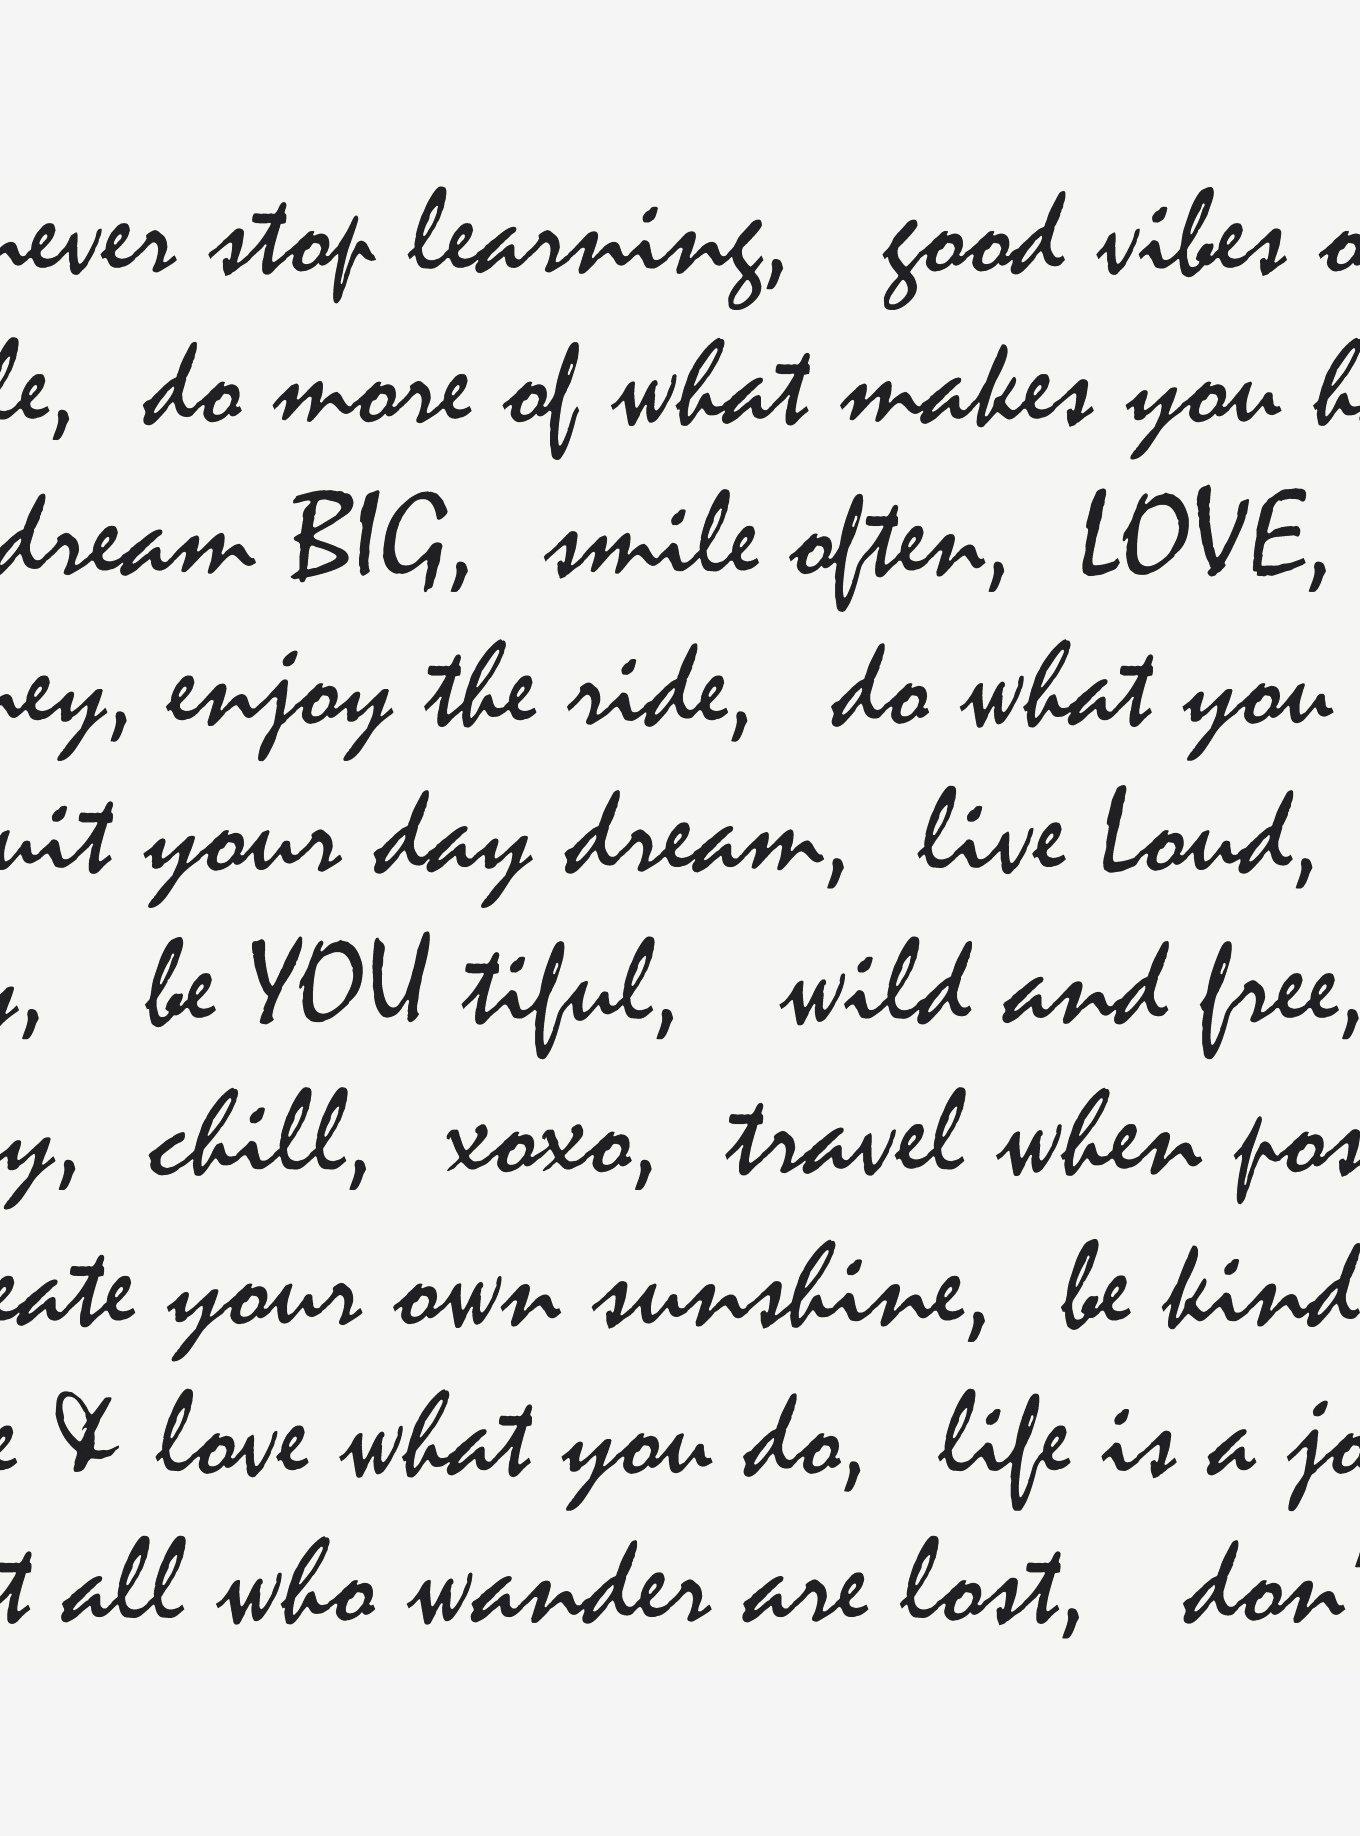 never stop learning, good vibes
do more of what makes you
dream BIG, smile often, LOVE,
enjoy the ride, do what you
your day dream, live Loud,
be YOU tiful, wild and free,
chill, xoxo, travel when
your own sunshine, be kind
& love what you do, life is a
all who wander are lost,